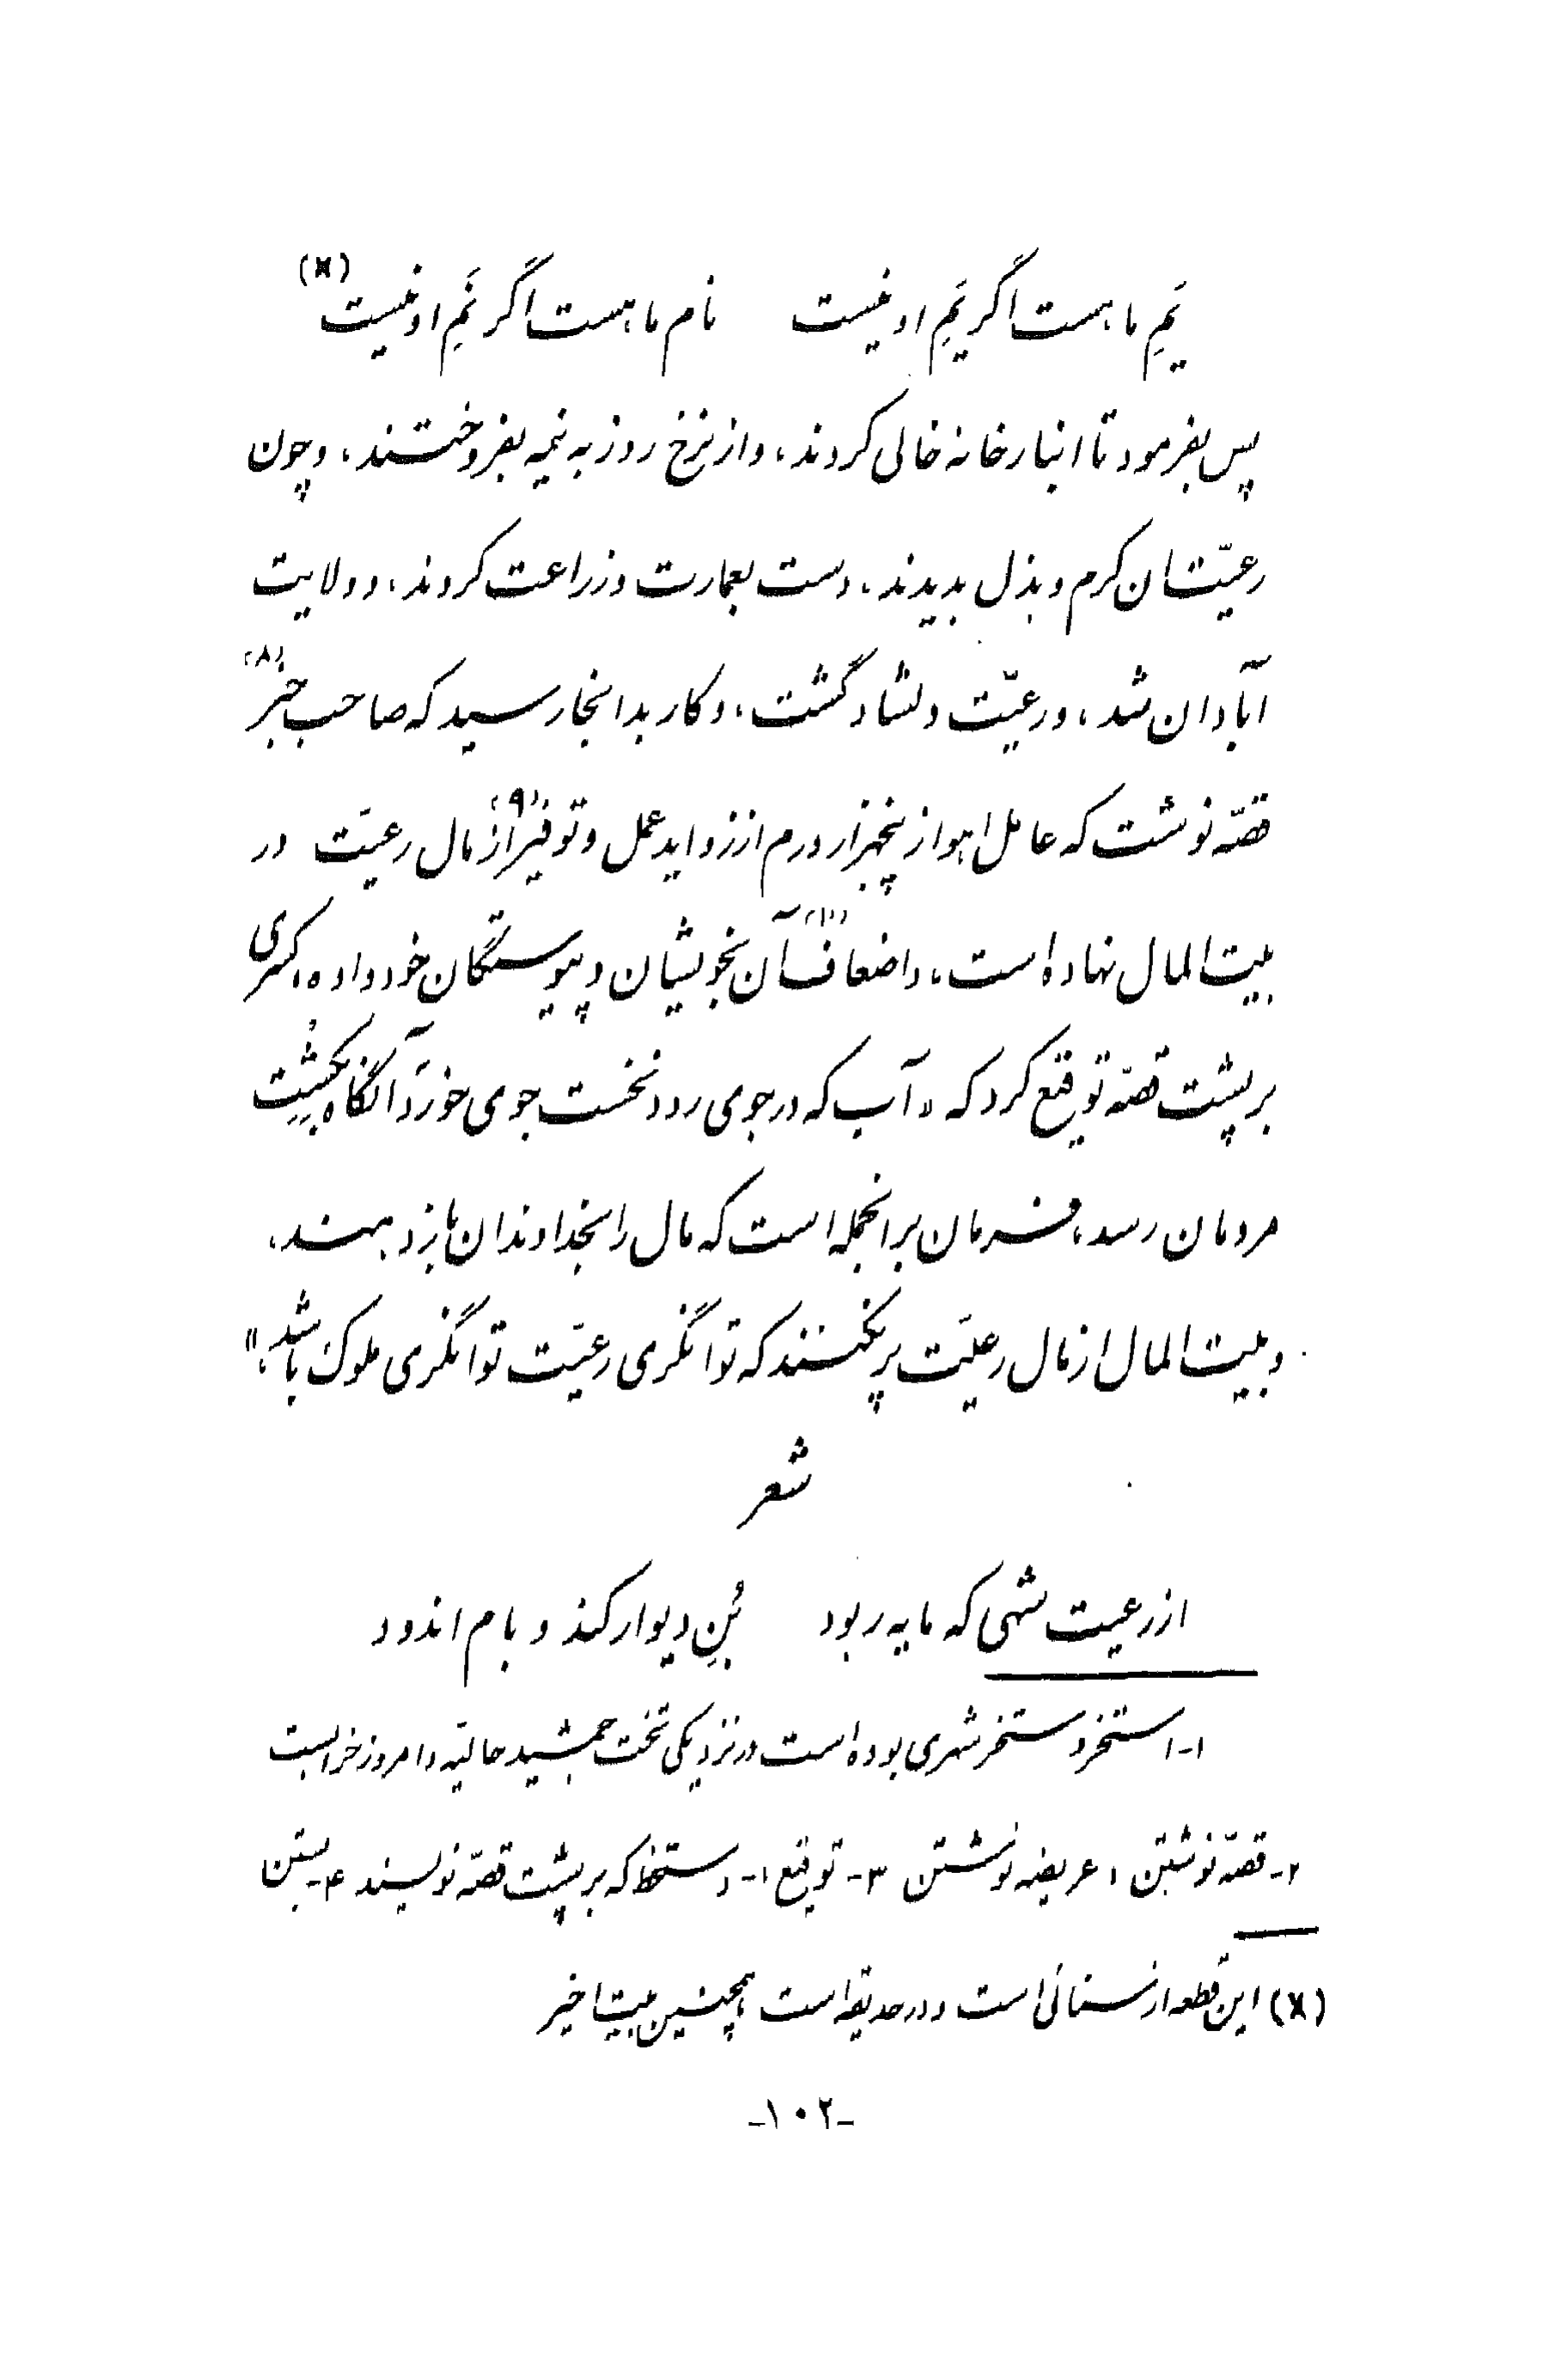 یَمِ ما هست اگر یَمِ او نیست    نام ما هست اگر نَمِ او نیست (×)
پس بفرمود تا انبار خانه خالی کردند، و از نرخ روز به نیمه بفروختند، و چون
رعیّت آن کرم و بذل بدیدند، دست بعمارت و زراعت کردند، و ولایت
آبادان شد، و رعیّت دلشاد گشت، و کار بدانجا رسید که صاحب خبر (۸)
قصّه نوشت که عامل اهواز پنجهزار درم از زواید عمل و توفیر (۹) از مال رعیّت در
بیت المال نهاده است، و اضعاف (۱۰) آن بخویشان و پیوستگان خود داده، کسری
بر پشت قصّه توقیع کرد که «آب که در جوی رود نخست جوی خورَد آنگاه بکِشت
مردمان رسد، فرمان برانجمله است که مال را بخداوندان باز دهند،
و بیت المال از مال رعیّت پر نکنند که توانگری رعیّت توانگری ملوک باشد،»
شعر
از رعیت شهی که مایه ربود    بُنِ دیوار کند و بام اندود
۱- استخر و ستخر شهری بوده است در نزدیکی تخت جمشید حالیّه و امروز خرابست
۲- قصّه نوشتن : عریضه نوشتن ۳- توقیع : دستخط که بر پشت قصّه نویسند ۴- بستن
(×) این قطعه از سنائی است و در حدیقه است همچنین بیت اخیر
-۱۰۲-